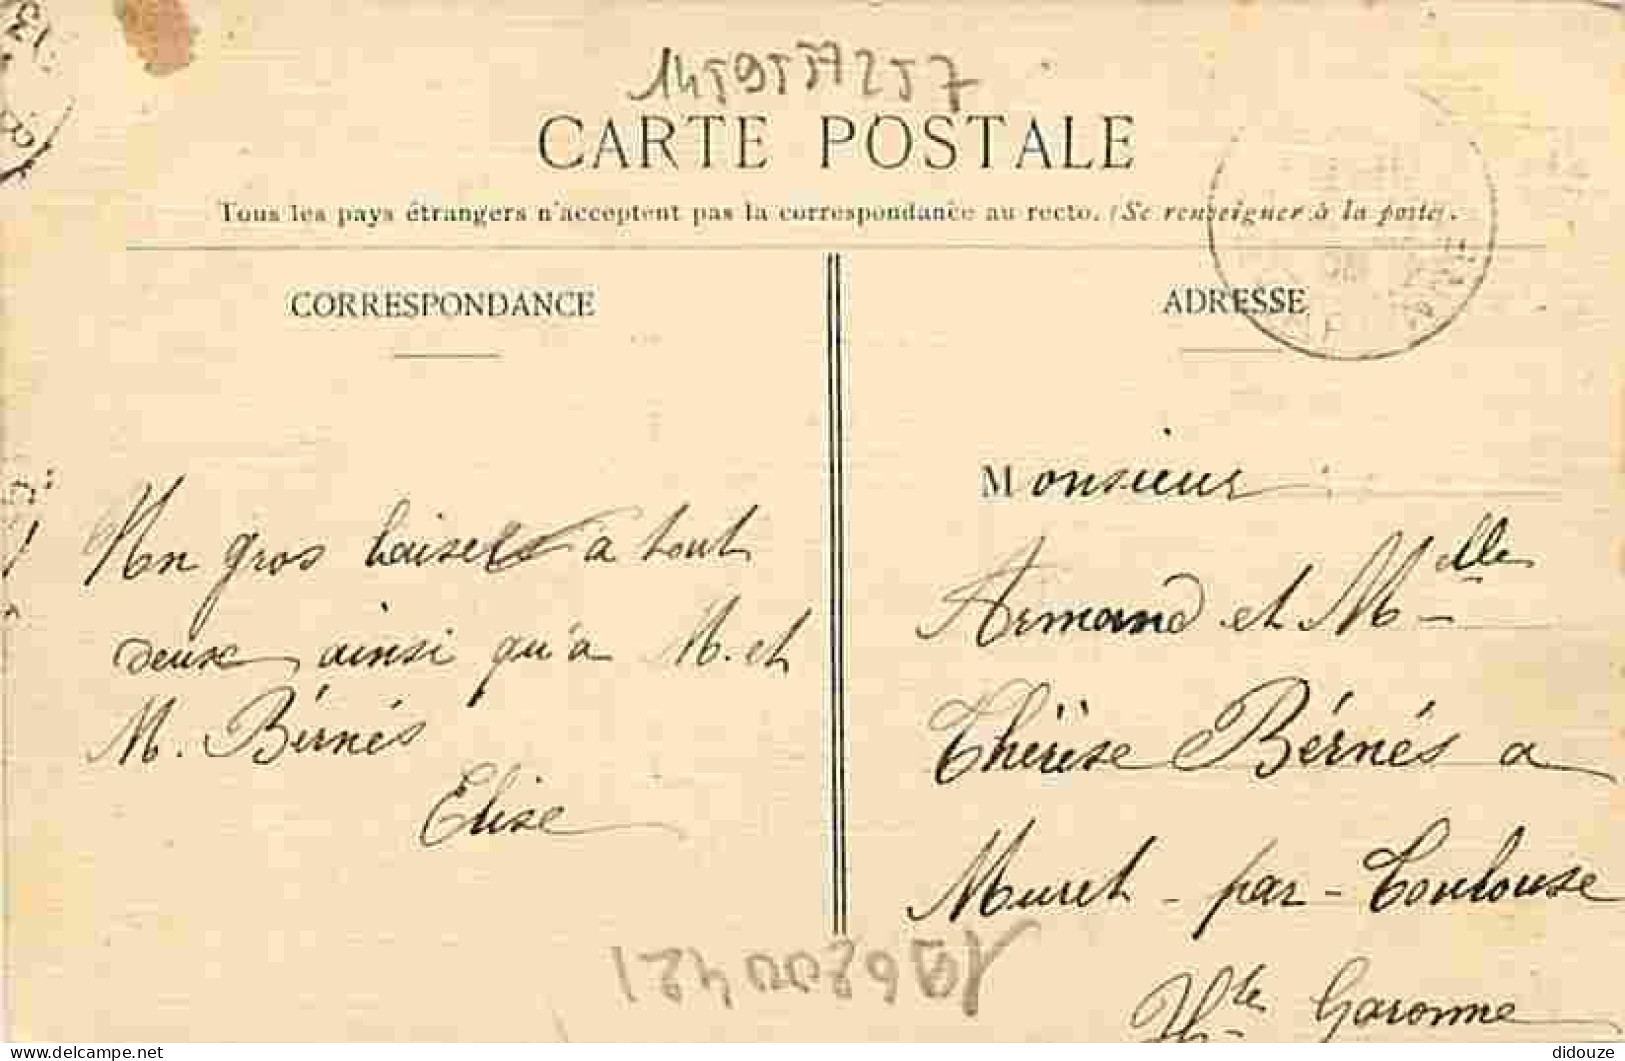 1459557257
CARTE POSTALE
Tous les pays étrangers n'acceptent pas la correspondance au recto. (Se renseigner à la poste).
CORRESPONDANCE
Un gros baiser a tout
deux ainsi qu'a M. et
M. Bérnés
Elise
ADRESSE
Monsieur
Armand et Mlle
Thérèse Bérnés a
Muret - par - Toulouse
Hte Garonne
didouze
delcampe.net